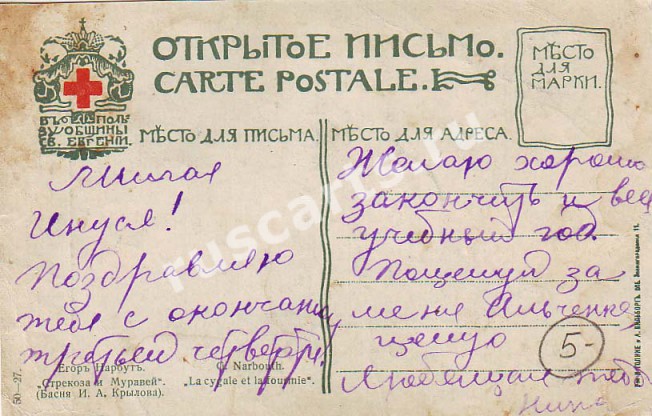 ОТКРЫТОЕ ПИСЬМО.
CARTE POSTALE.
МѢСТО
ДЛЯ
МАРКИ.
ВЪ ПОЛЬ
ЗУ ОБЩИНЫ
СВ. ЕВГЕНІИ.
МѢСТО ДЛЯ ПИСЬМА.
МѢСТО ДЛЯ АДРЕСА.
Милая
Инуся!
Поздравляю
тебя с окончанием
третьей четверти.
Желаю хорошо
закончить и весь
учебный год.
Поцелуй за
меня
целую
Любящая тебя
Нина
5-
Егоръ Нарбутъ.
„Стрекоза и Муравей".
(Басня И. А. Крылова).
G. Narbouth.
„La cygale et la fourmie".
50—27.
ruscarts.ru